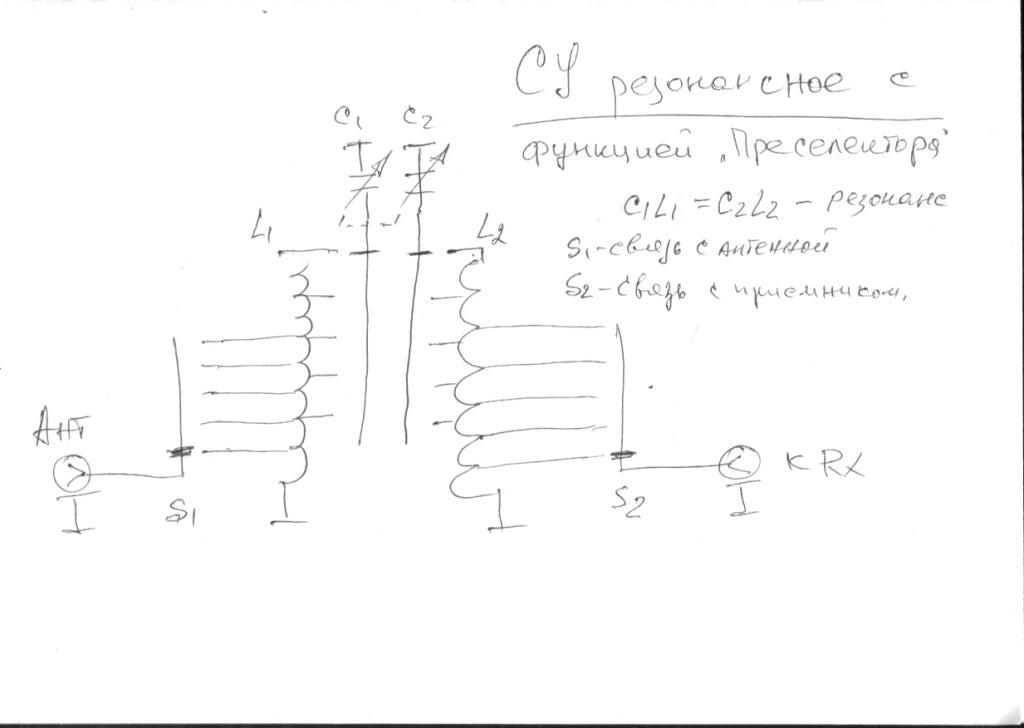 СУ резонансное с
функцией „Преселектора"
C1L1 = C2L2 - резонанс
S1-связь с антенной
S2-связь с приемником.
C1 C2
L1 L2
Ант
S1
S2
к RX